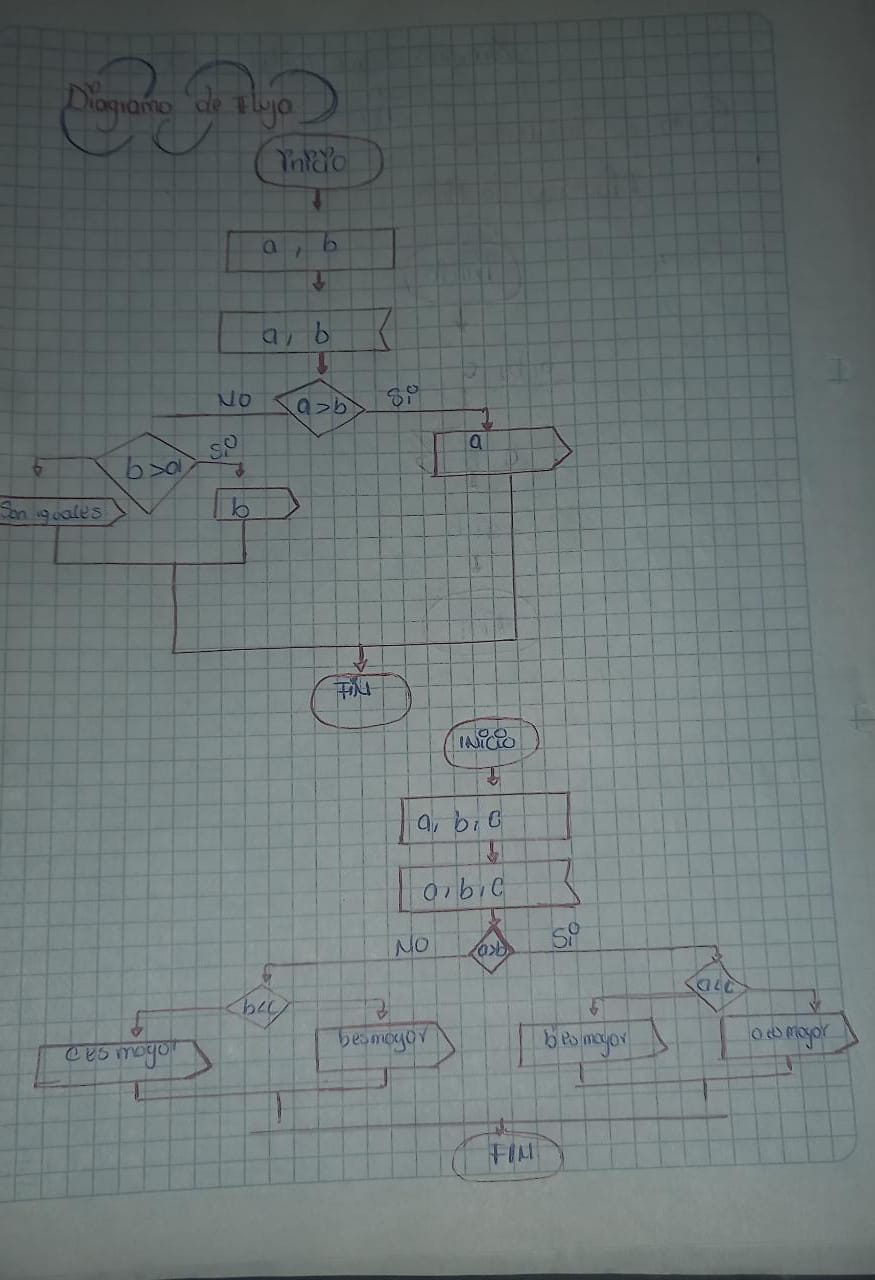 Diagrama de Flujo
inicio
a, b
a, b
NO a>b Si
b>a Si a
Son iguales b
FIN
INICIO
a, b, c
a, b, c
NO Si
c es mayor b es mayor b es mayor a es mayor
FIN